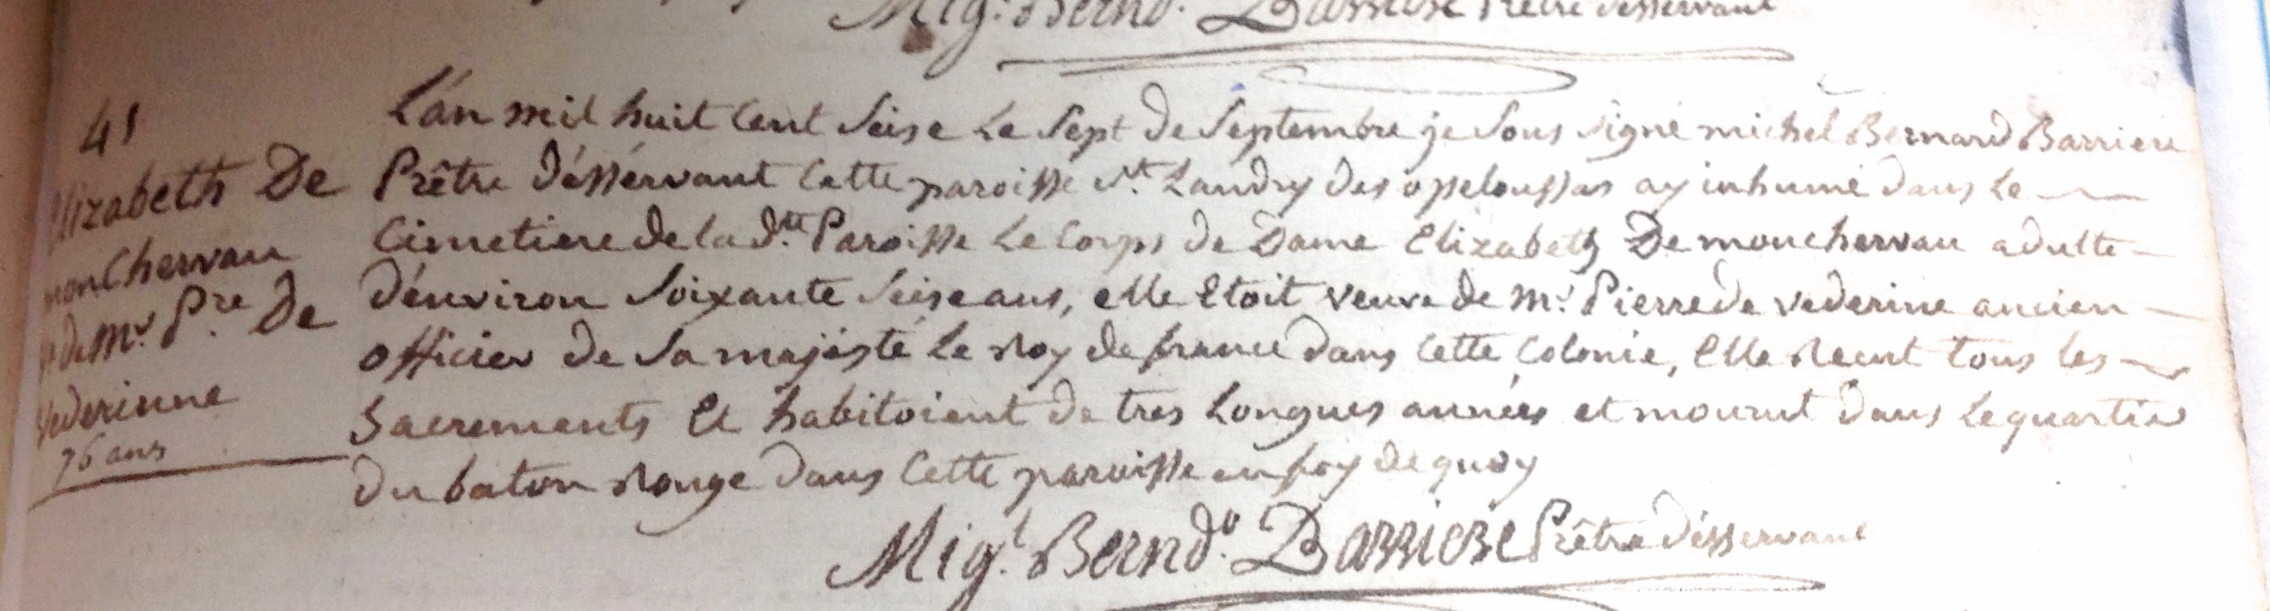 Mig.l Bernd.o Barriere Prêtre désservant
41
Elizabeth De
monchervau
v.e de Mr. P.re De
Vederinne
76 ans
L'an mil huit cent seise le sept de septembre je sous signé michel Bernard Barriere
Prêtre désservant cette paroisse St. Landry des oppeloussas ay inhumé dans le
Cimetiere de la d.tte Paroisse le corps de Dame Elizabeth De monchervau adulte
d'environ soixante seise ans, elle etoit veuve de Mr. Pierre de vederine ancien
officier de sa majesté le roy de france dans cette colonie, elle recut tous les
sacrements et habitoient de tres longues années et mourut dans le quartier
du baton rouge dans cette paroisse en foy de quoy
Mig.l Bernd.o Barriere Prêtre désservant